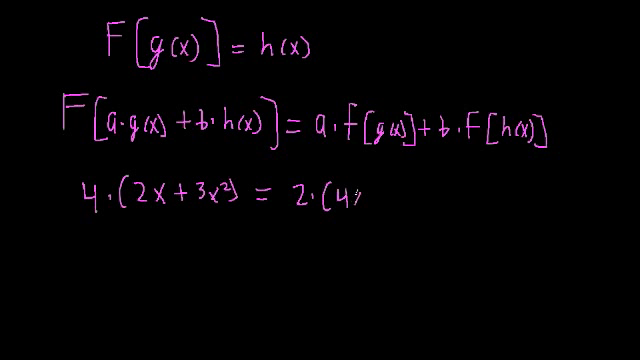 F[g(x)] = h(x)
F[a·g(x) + b·h(x)] = a·f[g(x)] + b·F[h(x)]
4·(2x + 3x²) = 2·(4